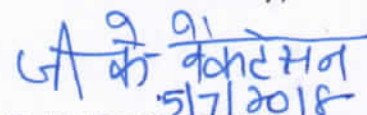 जी के वेंकटेसन
5/7/2018